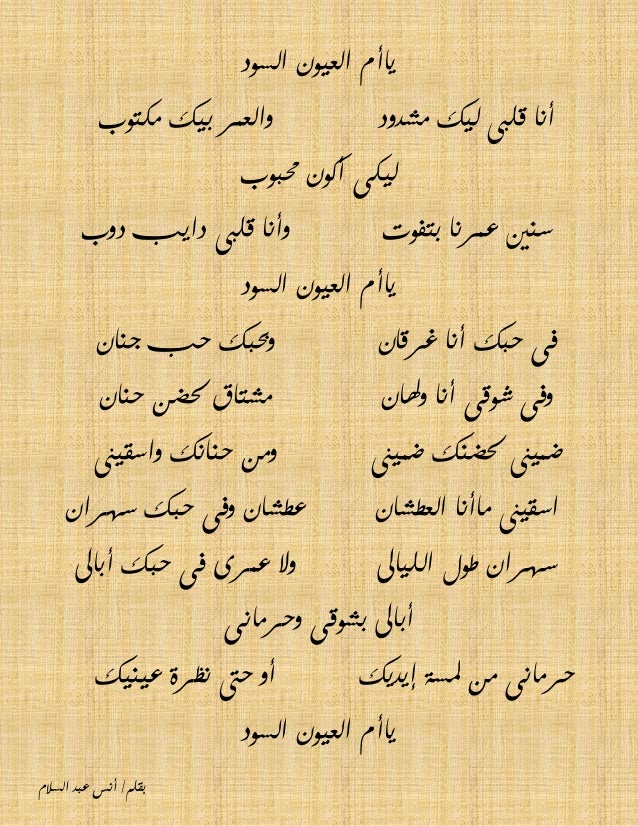 ياأم العيون السود
أنا قلبى ليك مشدود والعمر بيك مكتوب
ليكى أكون محبوب
سنين عمرنا بتفوت وأنا قلبى دايب دوب
ياأم العيون السود
فى حبك أنا غرقان وبحبك حب جنان
وفى شوقى أنا ولهان مشتاق لحضن حنان
ضمينى لحضنك ضمينى ومن حنانك واسقينى
اسقينى ماأنا العطشان عطشان وفى حبك سهران
سهران طول الليالى ولا عمرى فى حبك أبالى
أبالى بشوقى وحرمانى
حرمانى من لمسة إيديك أو حتى نظرة عينيك
ياأم العيون السود
بقلم/ أنس عبد السلام